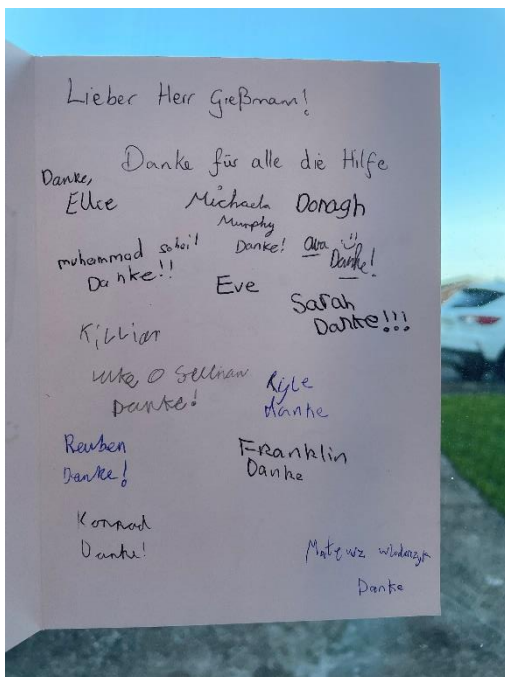 Lieber Herr Greßmann!
Danke für alle die Hilfe
Danke,
Ellie
Michaela
Murphy
Danke!
Donagh
muhammad soheil
Danke!!
Ava
Danke!
Eve
Sarah
Danke!!!
Killian
O Sullivan
Danke!
Kyle
danke
Reuben
Danke!
Franklin
Danke
Konrad
Danke!
Mateusz Wlodarczyk
Danke